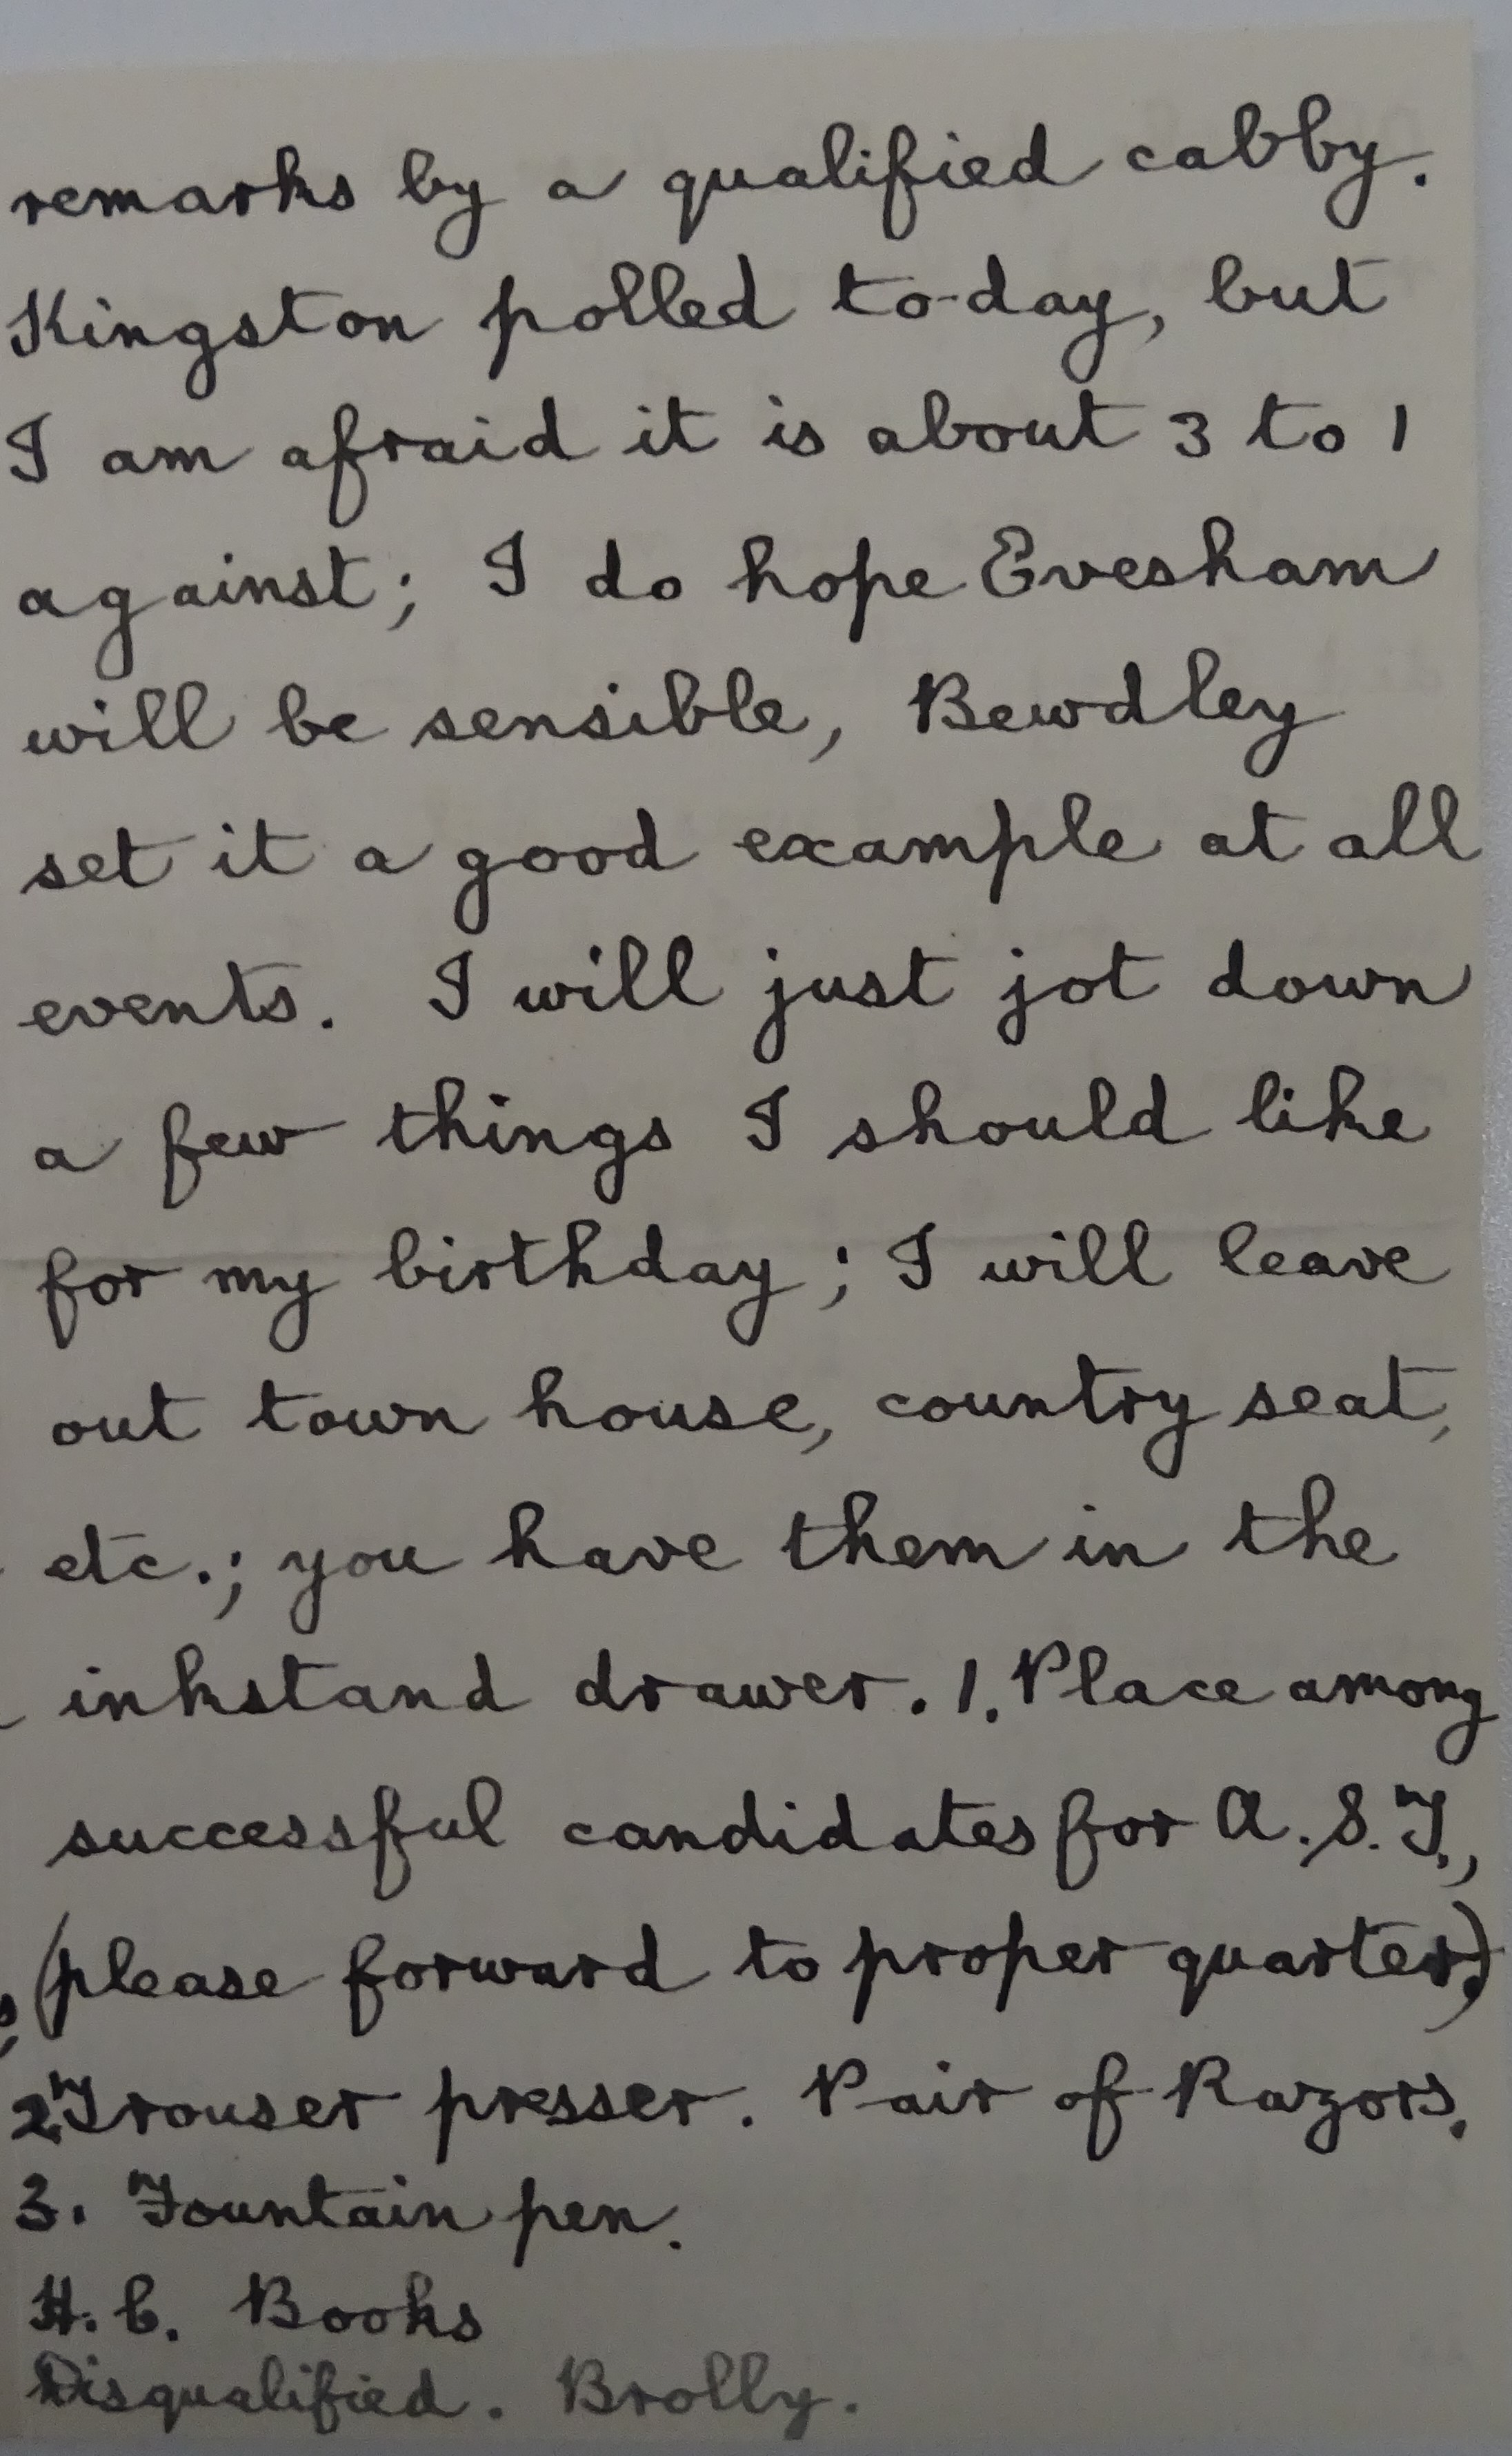 remarks by a qualified cabby.
Kingston polled to-day, but
I am afraid it is about 3 to 1
against; I do hope Evesham
will be sensible, Bewdley
set it a good example at all
events. I will just jot down
a few things I should like
for my birthday; I will leave
out town house, country seat,
etc.; you have them in the
inkstand drawer. 1. Place among
successful candidates for A.S.T.,
(please forward to proper quarter.)
2 Trouser presser. Pair of Razors.
3. Fountain pen.
H.C. Books
Disqualified. Brolly.